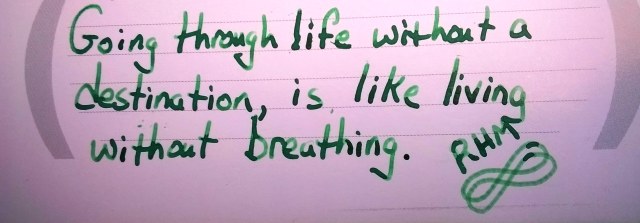 Going through life without a
destination, is like living
without breathing.
R.H.M